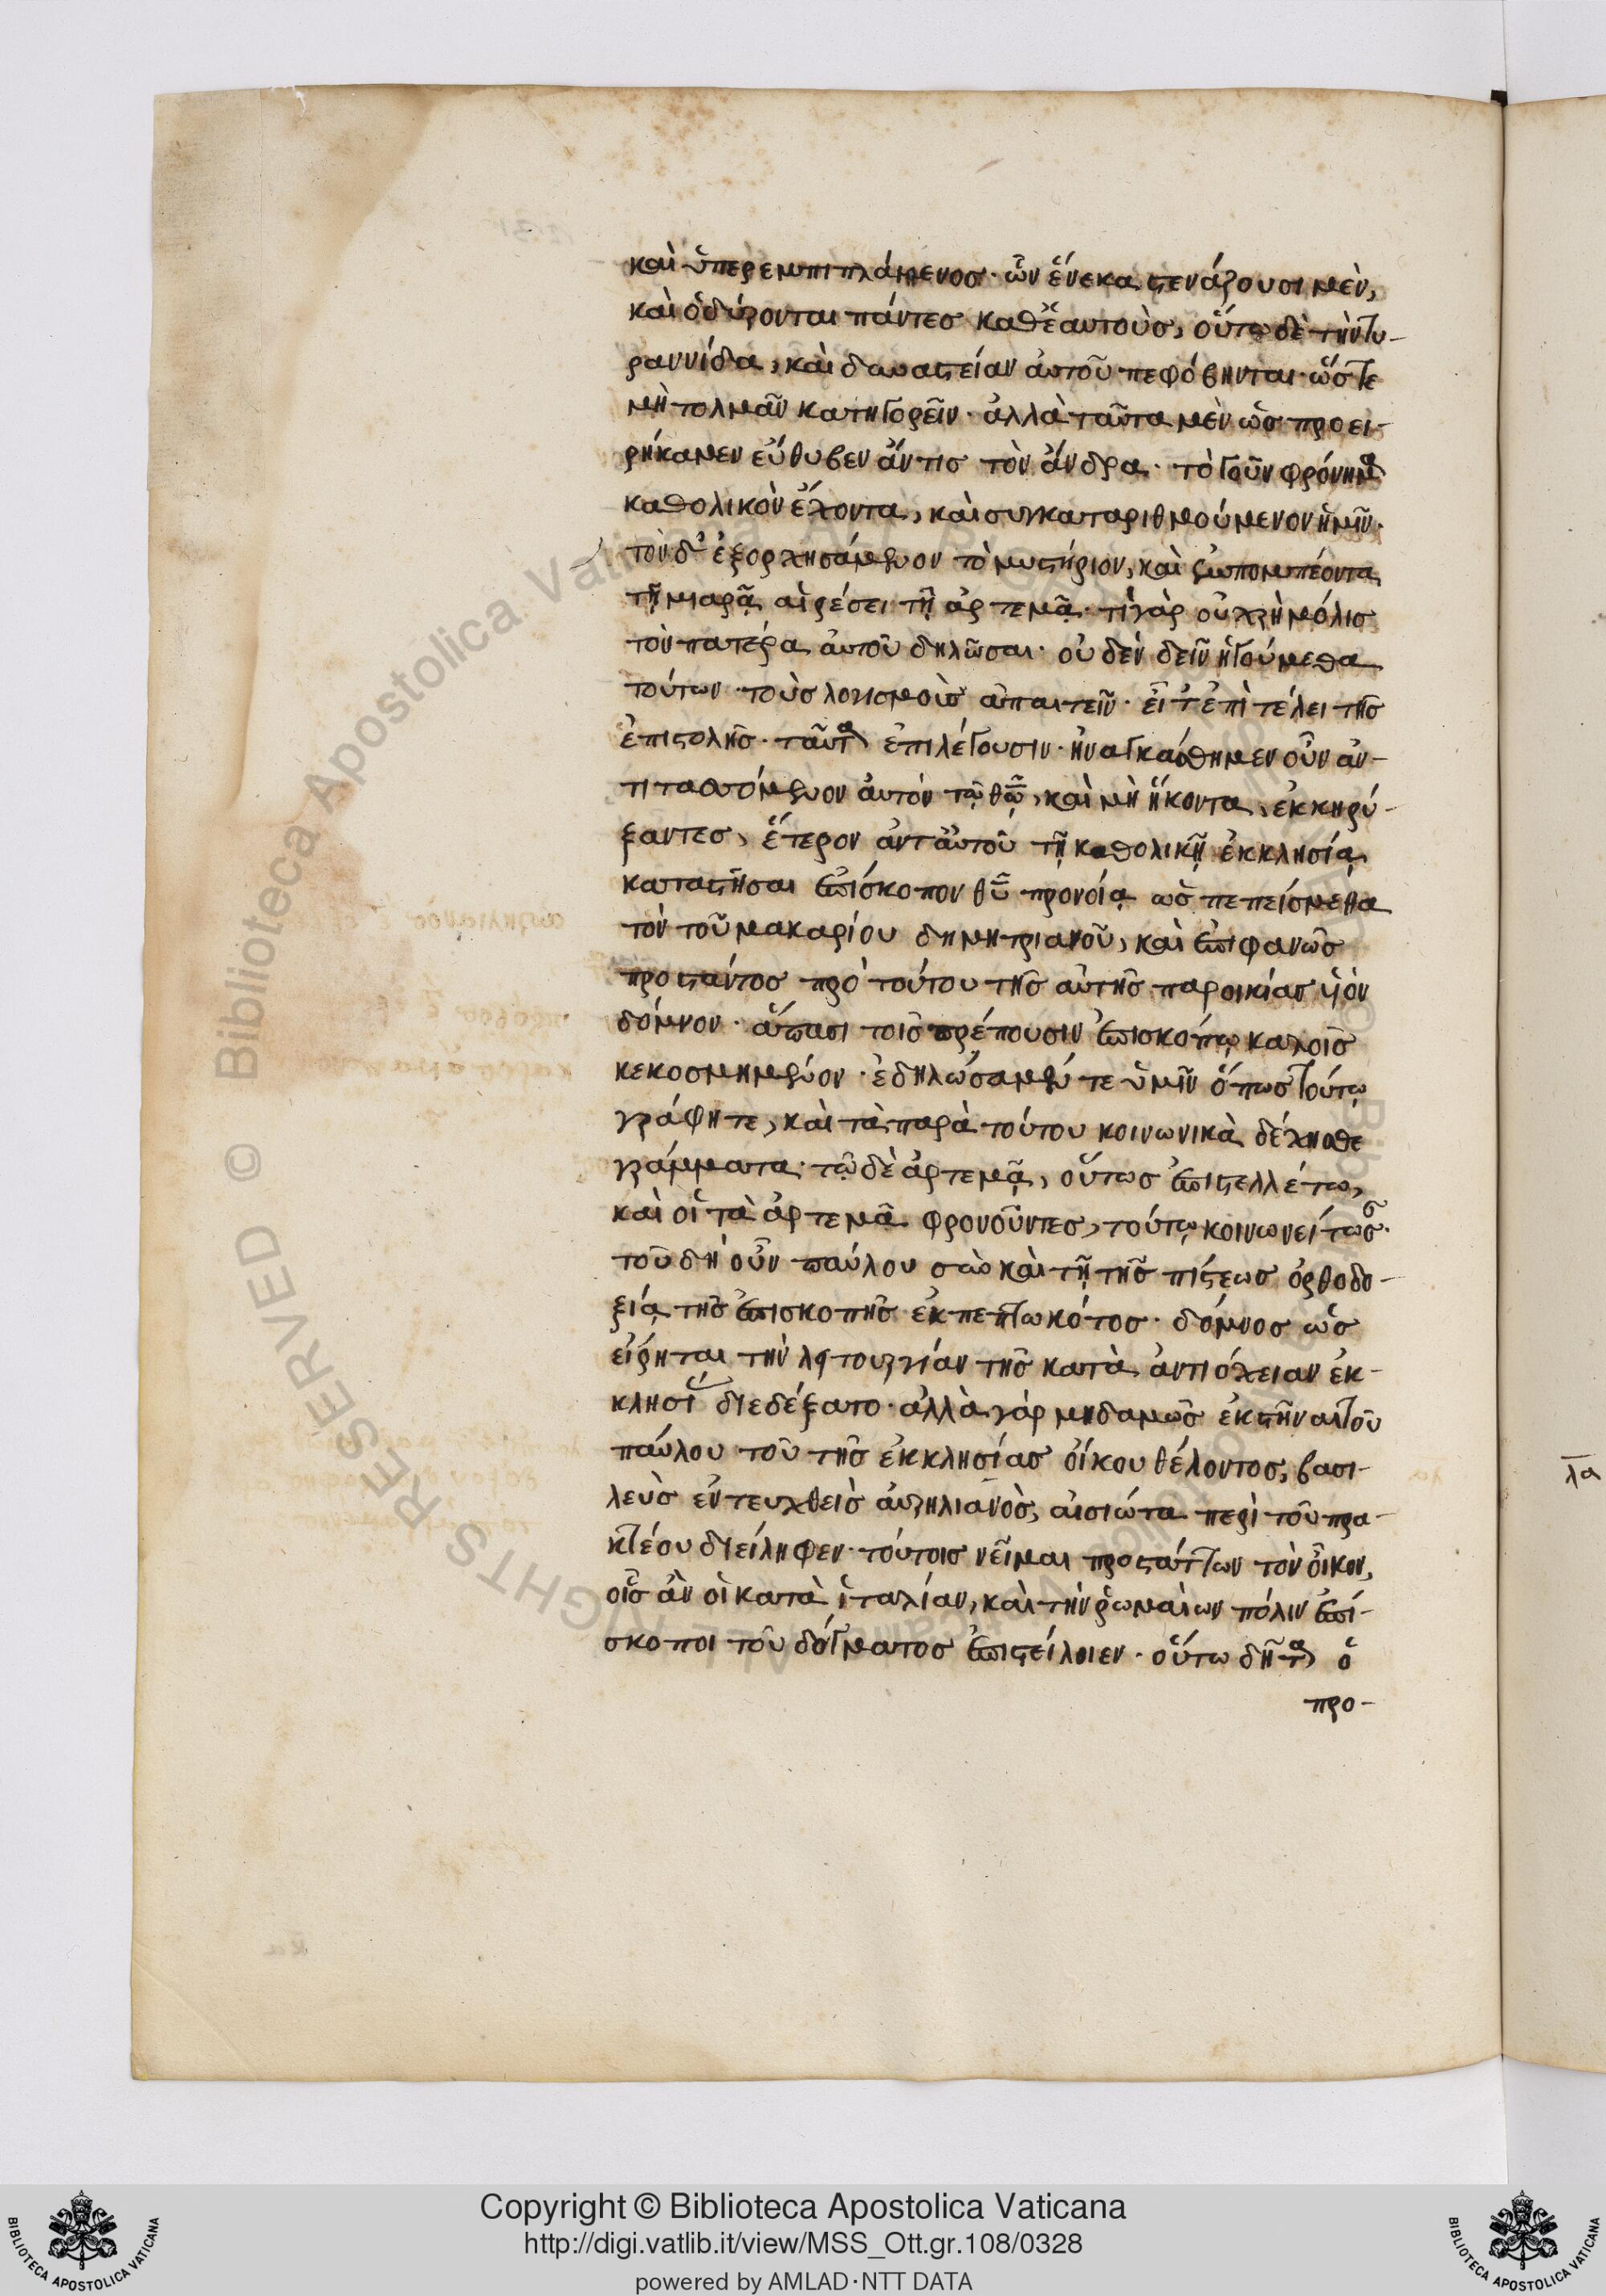 καὶ ὑπερεμπιπλάμενοσ· ὧν ἕνεκα στενάζουσι μὲν,
καὶ ὀδύρονται πάντεσ καθ' ἑαυτοὺσ, οὕτω δὲ τὴν τυ-
ραννίδα, καὶ δυναστείαν αὐτοῦ πεφόβηνται· ὥστε
μὴ τολμᾶν κατηγορεῖν· ἀλλὰ ταῦτα μὲν ὡσ προει-
ρήκαμεν εὔθυβεν ἄν τισ τὸν ἄνδρα· τὸ γοῦν φρόνημα
καθολικὸν ἔχοντα, καὶ συγκαταριθμούμενον ἡμῖν·
τὸν δ' ἐξορχησάμενον τὸ μυστήριον, καὶ ἐμπομπέοντα
τῇ μιαρᾷ αἱρέσει τῇ ἀρτεμᾶ· τί γὰρ οὐ χρὴ μόλισ
τὸν πατέρα αὐτοῦ δηλῶσαι· οὐδὲν δεῖν ἡγούμεθα
τούτων τοὺσ λογισμοὺσ ἀπαιτεῖν· εἶτ' ἐπὶ τέλει τῆσ
ἐπιστολῆσ· ταῦτα ἐπιλέγουσιν· ἠναγκάσθημεν οὖν ἀν-
τιτασσόμενον αὐτὸν τῷ θῷ, καὶ μὴ ἥκοντα, ἐκκηρύ-
ξαντεσ, ἕτερον ἀντ' αὐτοῦ τῇ καθολικῇ ἐκκλησίᾳ
καταστῆσαι ἐπίσκοπον θῦ προνοίᾳ ὡσ πεπείσμεθα
τὸν τοῦ μακαρίου δημητριανοῦ, καὶ ἐπιφανῶσ
προστάντοσ πρὸ τούτου τῆσ αὐτῆσ παροικίασ ὑὸν
δόμνον· ἅπασι τοῖσ πρέπουσιν ἐπισκόπῳ καλοῖσ
κεκοσμημένον· ἐδηλώσαμέν τε ὑμῖν ὅπωσ τούτῳ
γράφητε, καὶ τὰ παρὰ τούτου κοινωνικὰ δέχησθε
γράμματα· τῷ δὲ ἀρτεμᾷ, οὕτωσ ἐπιστελλέτω,
καὶ οἱ τὰ ἀρτεμᾶ φρονοῦντεσ, τούτῳ κοινωνείτωσ·
τοῦ δὴ οὖν παύλου σὺν καὶ τῇ τῆσ πίστεωσ ὀρθοδο-
ξίᾳ τῆσ ἐπισκοπῆσ ἐκπεπτωκότοσ· δόμνοσ ὡσ
εἴρηται τὴν λειτουργίαν τῆσ κατὰ ἀντιόχειαν ἐκ-
κλησίασ διεδέξατο· ἀλλὰ γὰρ μηδαμῶσ ἐκστῆναι τοῦ
παύλου τοῦ τῆσ ἐκκλησίασ οἴκου θέλοντοσ, βασι-
λεὺσ ἐντευχθεὶσ αὐρηλιανὸσ, αἰσιώτατα περὶ τοῦ πρα-
κτέου διείληφεν· τούτοισ νεῖμαι προστάττων τὸν οἶκον,
οἷσ ἂν οἱ κατὰ ἰταλίαν, καὶ τὴν ῥωμαίων πόλιν ἐπί-
σκοποι τοῦ δόγματοσ ἐπιστείλοιεν· οὕτω δῆτα ὁ
προ-
λα
Copyright © Biblioteca Apostolica Vaticana
http://digi.vatlib.it/view/MSS_Ott.gr.108/0328
powered by AMLAD·NTT DATA